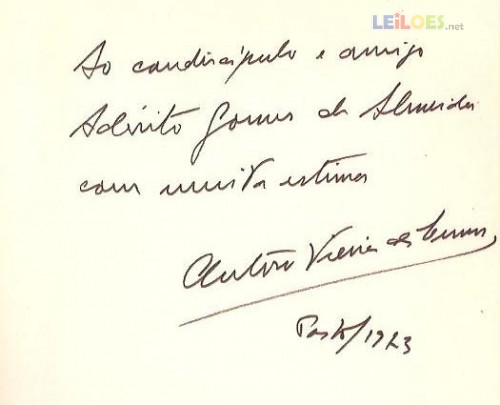 LEiLOES.net
Ao condiscípulo e amigo
Adérito Gomes de Almeida
com muita estima
António Vieira de
Porto/19